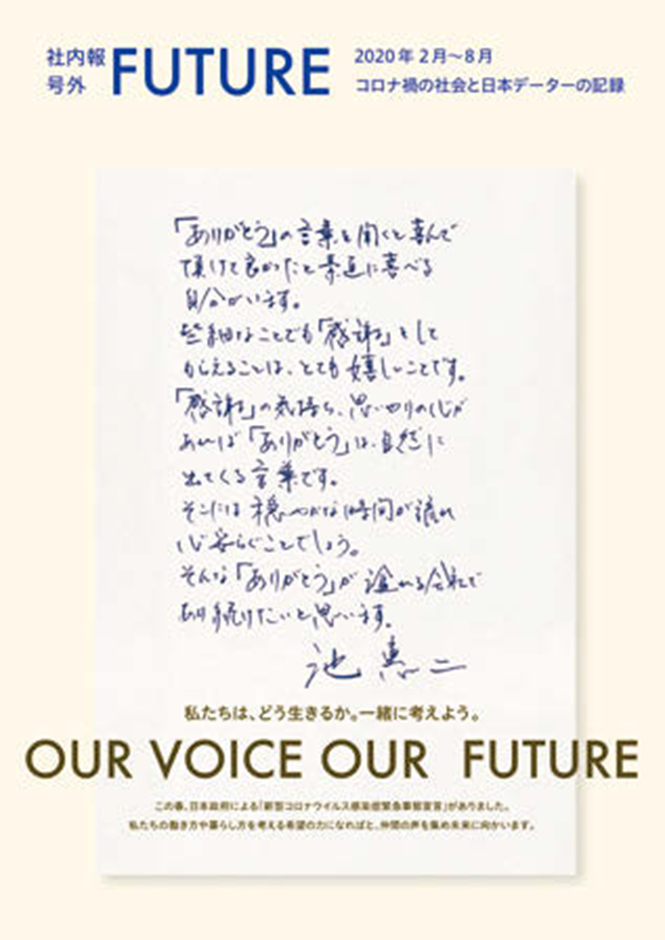 社内報
号外
FUTURE
2020年2月～8月
コロナ禍の社会と日本データーの記録
「ありがとう」の言葉を聞くと喜んで
頂けて良かったと素直に喜べる
自分がいます。
些細なことでも「感謝」をして
もらえることは、とても嬉しいことです。
「感謝」の気持ち、思いやりの心が
あれば「ありがとう」は、自然に
出てくる言葉です。
そこには穏やかな時間が流れ
心安らぐことでしょう。
そんな「ありがとう」が溢れる会社で
あり続けたいと思います。
池 恵二
私たちは、どう生きるか。一緒に考えよう。
OUR VOICE OUR FUTURE
この春、日本政府による「新型コロナウイルス感染症緊急事態宣言」がありました。
私たちの働き方や暮らし方を考える希望の力になればと、仲間の声を集め未来に向かいます。